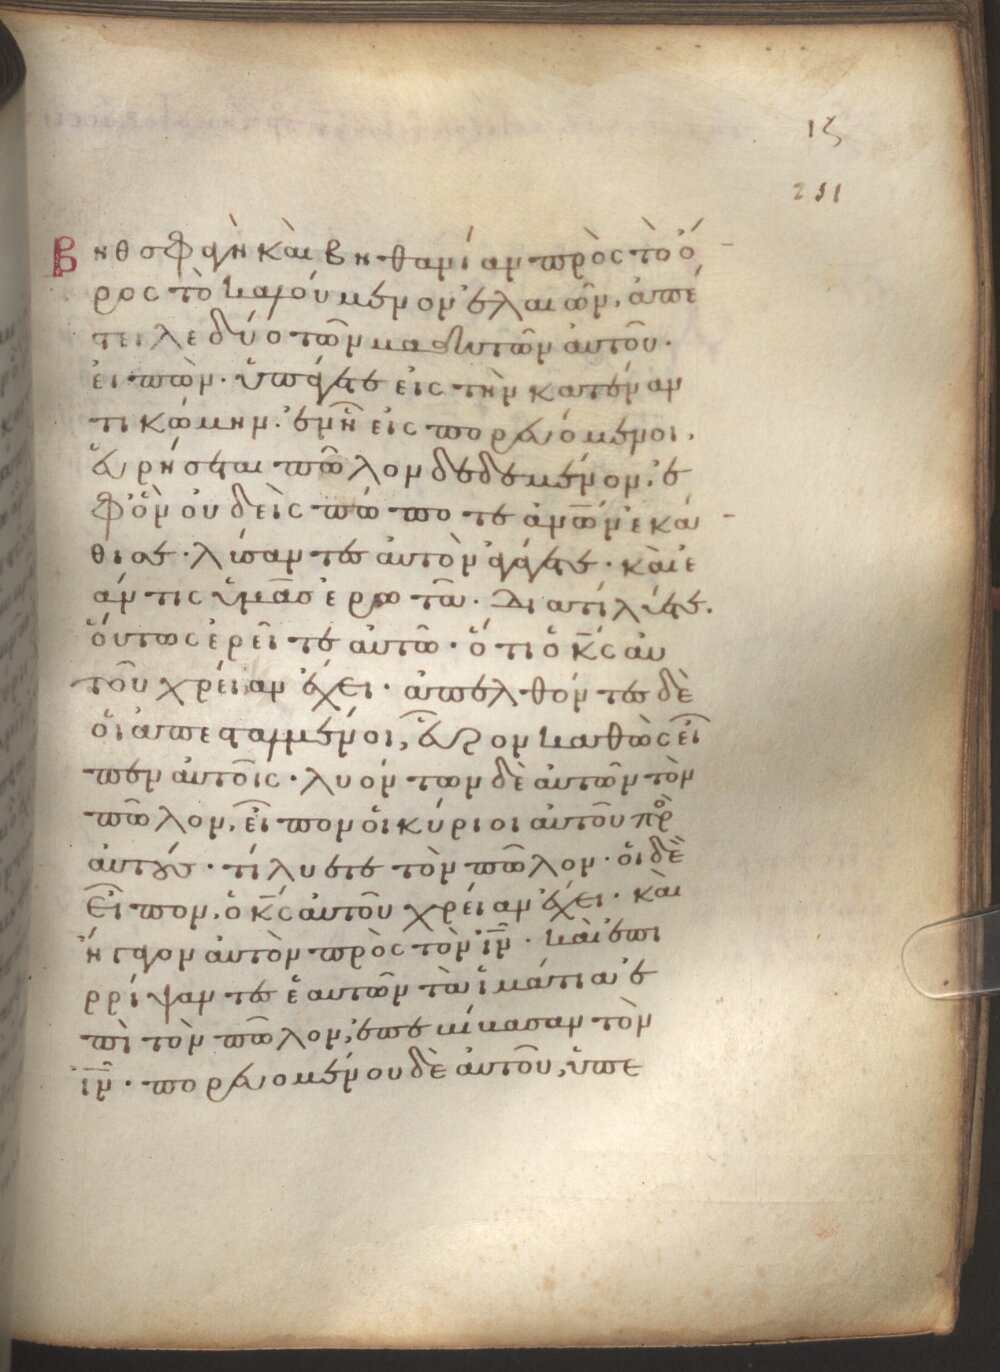 ιζ
211
Βηθσφαγὴ κὰι βηθαμίαν πρὸς τὸ ὄ
ρος τὸ καλούμενον ἐλαιῶν, ἀπέ
στειλε δύο τῶν μαθητῶν ἀυτοῦ·
ἐιπὼν· ὕπάγετε εἰς τὴν κατέναν
τι κώμην· ἐν ἧ εἰσπορευόμενοι,
ἕυρήσεται πῶλον δεδεμένον, ἐ
φ' ὃν ὀυδεὶς πώποτε ἀνων ἐκά
θισε· λύσαντες ἀυτὸν ἀγάγετε· κὰι ἐ
άν τις ὑμᾶσ ἐρωτᾶ· Διατί λύετε.
ὅυτως ἐρεῖτε ἀυτῶ· ὅτι ὁ κς ἀυ
τοῦ χρείαν ἔχει· ἀπελθόντες δὲ
ὅι ἀπεσταλμένοι, εὗρον καθὼς εἶ
πεν ἀυτοῖς· λυόντων δὲ ἀυτῶν τὸν
πῶλον, εἶπον ὅι κύριοι ἀυτοῦ πρ
ἀυτούς· τί λυετε τὸν πῶλον· ὅι δὲ
εἶπον, ὁ κς ἀυτοῦ χρείαν ἔχει· κὰι
ἤγαγον ἀυτὸν πρὸς τὸν ιν· κὰι ἐπι
ρρίψαντες ἑαυτῶν τὰ ἵμάτια ἐ
πὶ τὸν πῶλον, ἐπεκίκασαν τὸν
ιν· πορευομένου δὲ ἀυτοῦ, ὑπε